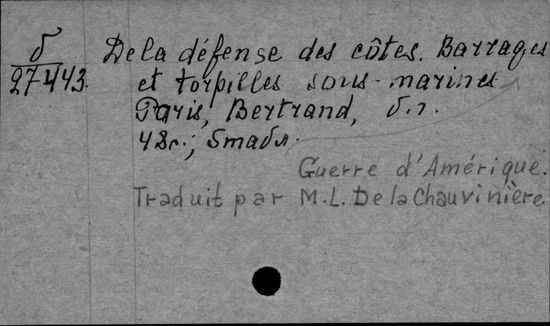 б
27443
De la défense des côtes. Barrages
et torpilles sous-marines
Paris, Bertrand, б.г.
48с.; 5табл.
Guerre d'Amérique.
Traduit par M.L. De la Chauvinière.